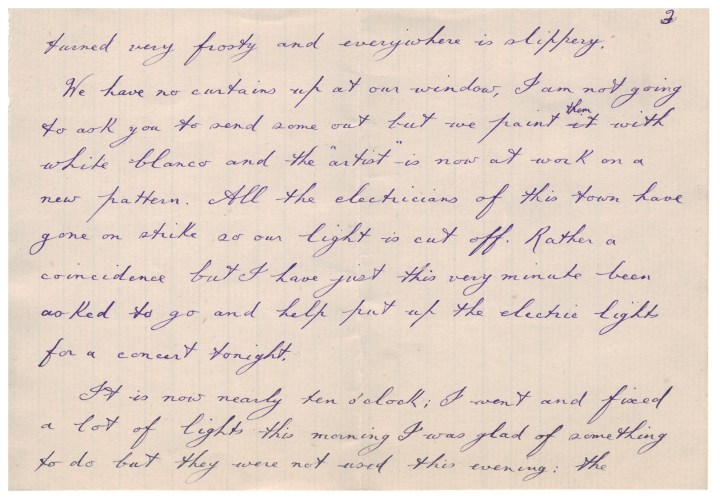 2
turned very frosty and everywhere is slippery.
We have no curtains up at our window, I am not going
them
to ask you to send some out but we paint it with
white blanco and the "artist" is now at work on a
new pattern. All the electricians of this town have
gone on strike so our light is cut off. Rather a
coincidence but I have just this very minute been
asked to go and help put up the electric lights
for a concert tonight.
It is now nearly ten o'clock; I went and fixed
a lot of lights this morning I was glad of something
to do but they were not used this evening: the